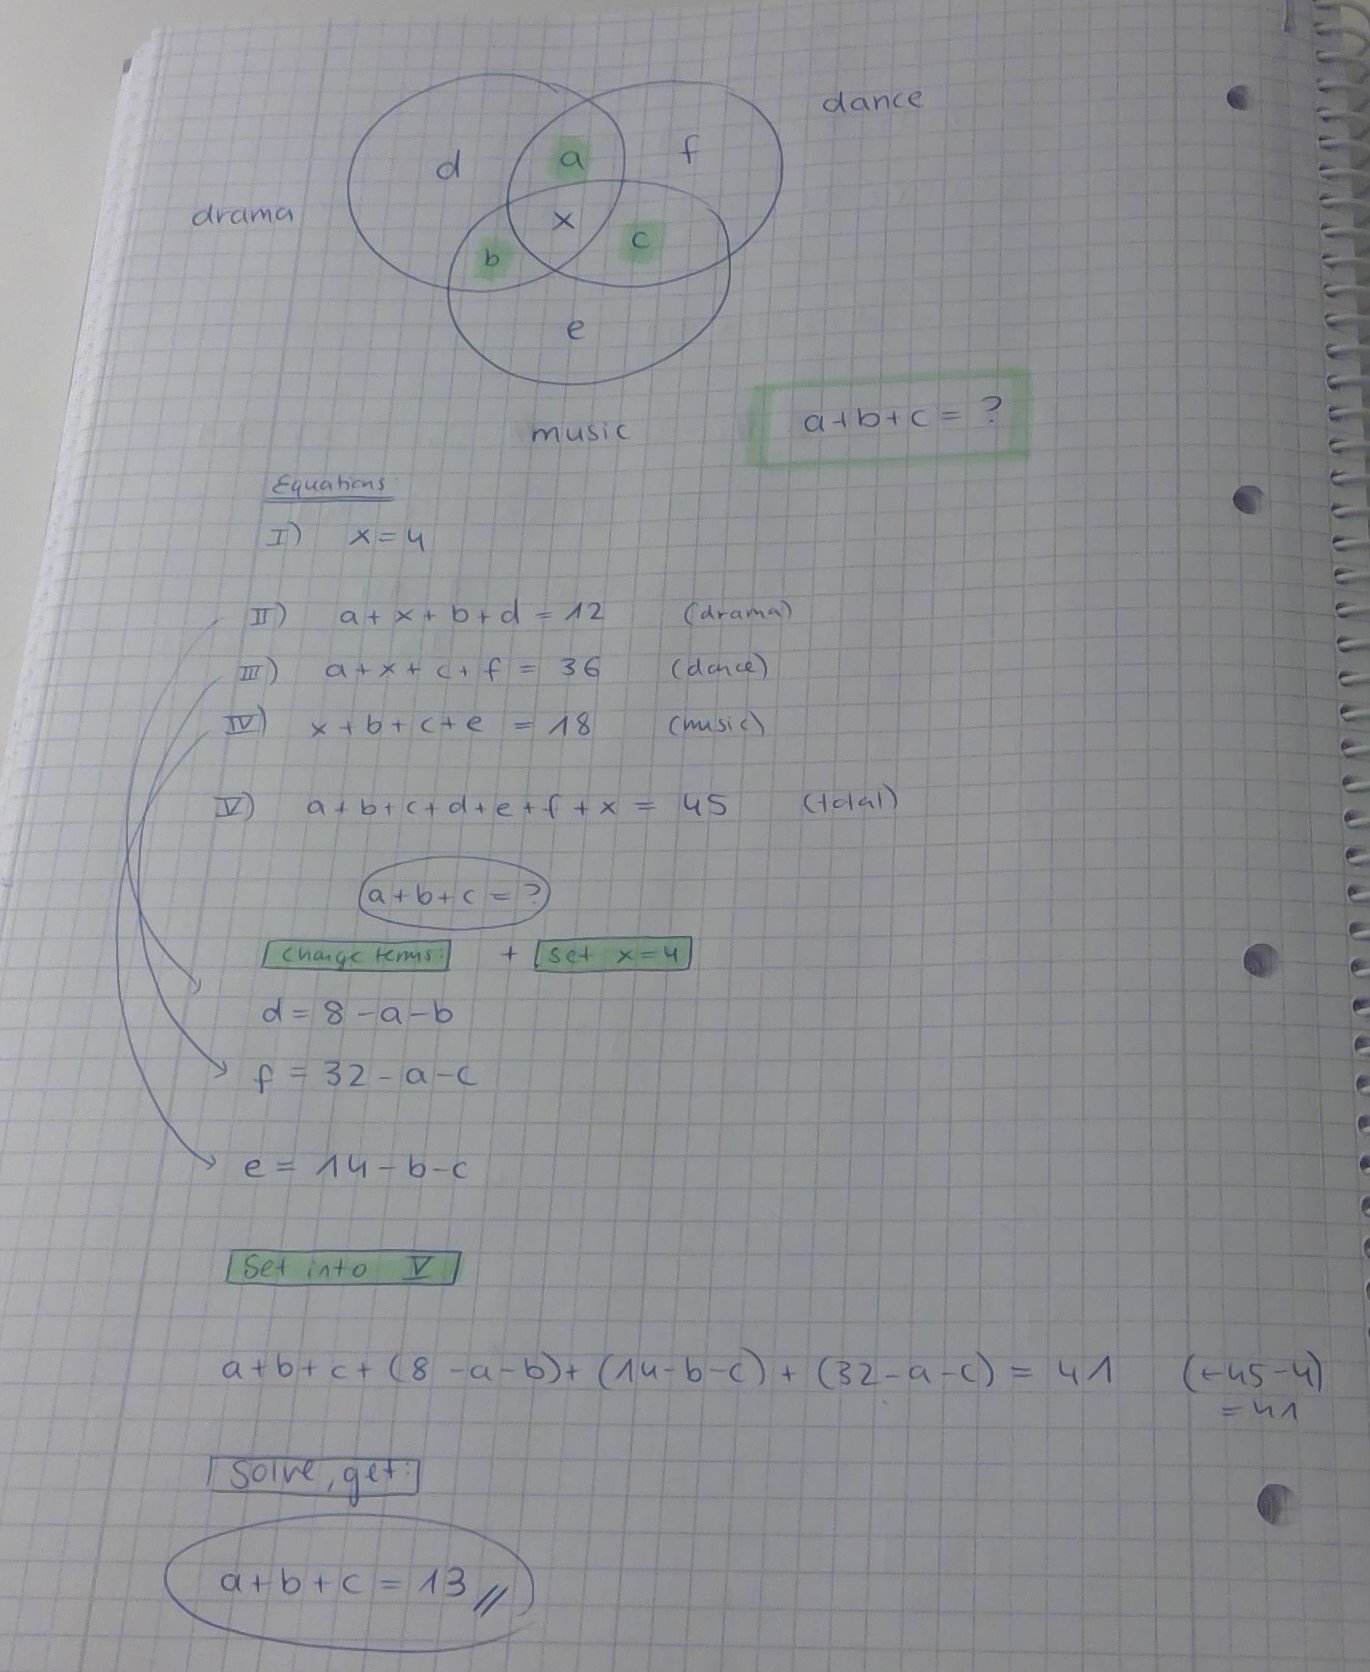 dance
d a f
drama
x
b c
e
a+b+c = ?
music
Equations
I) x=4
II) a+x+b+d = 12 (drama)
III) a+x+c+f = 36 (dance)
IV) x+b+c+e = 18 (music)
V) a+b+c+d+e+f+x = 45 (total)
a+b+c = ?
Change terms: + Set x=4
d = 8-a-b
f = 32-a-c
e = 14-b-c
Set into V
a+b+c+(8-a-b)+(14-b-c)+(32-a-c) = 41 (←45-4)
= 41
Solve, get:
a+b+c = 13